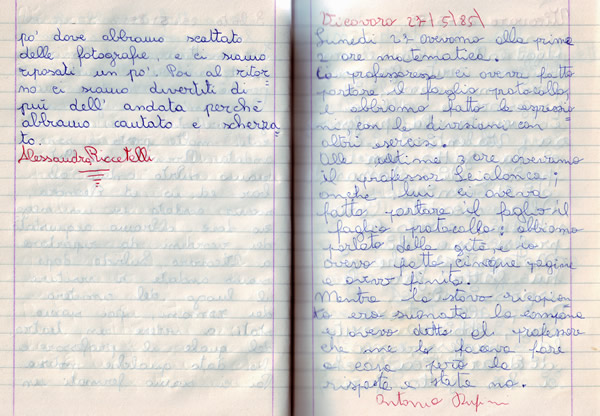 po' dove abbiamo scattato
delle fotografie, e ci siamo
riposati un po'. Poi al ritor
no ci siamo divertiti di
più dell' andata perché
abbiamo cantato e scherza
to.
Alessandra Riccetelli
Dicovara 27/5/85/
Lunedì 27 avevamo alla prime
2 ore matematica.
La professoressa ci aveva fatto
portare il foglio protocollo,
e abbiamo fatto le espressio
ni con le divisioni con
altri esercisi.
Alle ultime 3 ore avevamo
il professor
anche lui ci aveva
fatto portare il foglio il
foglio protocollo; abbiamo
parlato della gita, e io
avevo fatto cinque pagine
e avevo finito.
Mentre lo stavo ricopian
to era suonata la campana
e avevo detto al professore
che me lo faceva fare
a casa però la
risposta e stata no.
Antonio